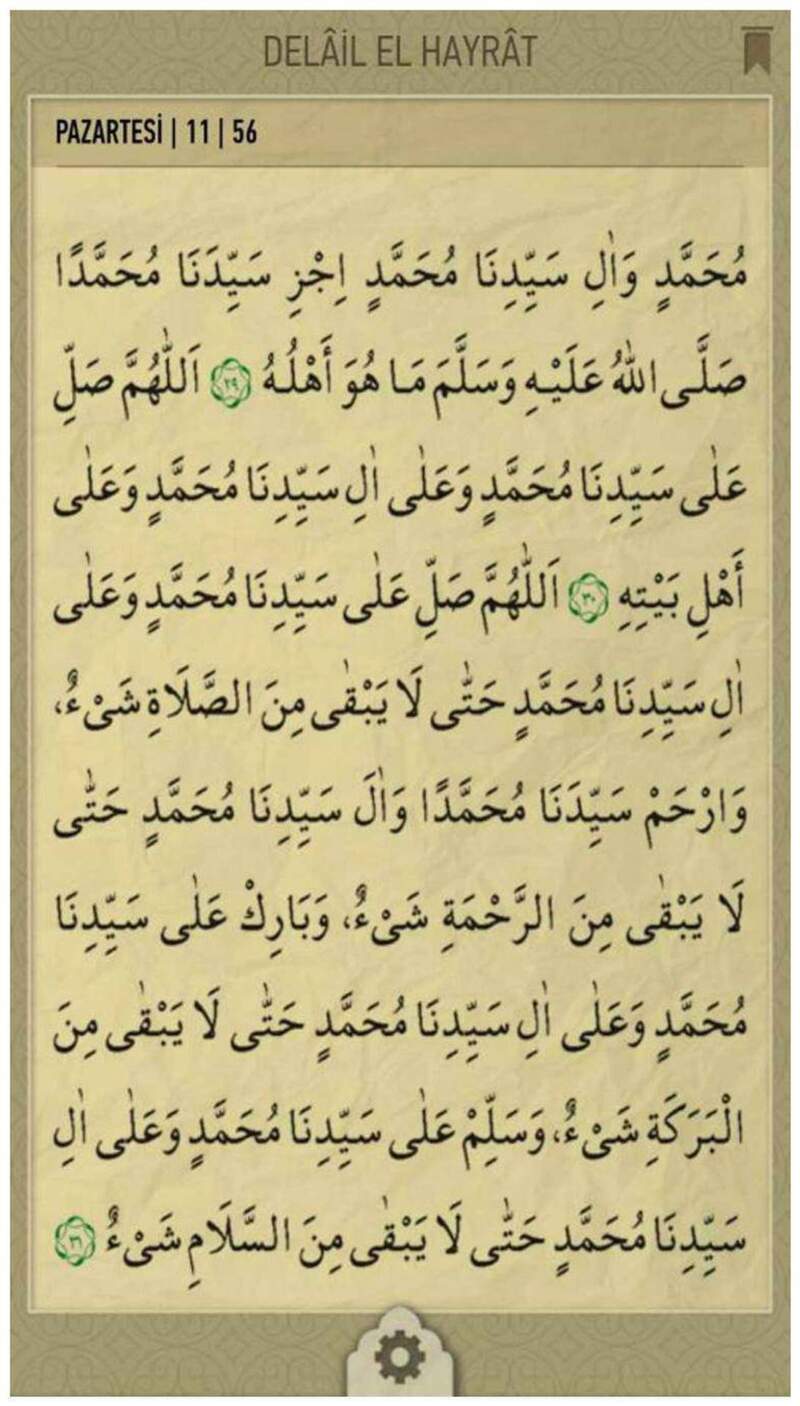 DELÂİL EL HAYRÂT
PAZARTESİ | 11 | 56
مُحَمَّدٍ وَاٰلِ سَيِّدِنَا مُحَمَّدٍ اِجْزِ سَيِّدَنَا مُحَمَّدًا
صَلَّى اللّٰهُ عَلَيْهِ وَسَلَّمَ مَا هُوَ أَهْلُهُ ٢٩ اَللّٰهُمَّ صَلِّ
عَلٰى سَيِّدِنَا مُحَمَّدٍ وَعَلٰى اٰلِ سَيِّدِنَا مُحَمَّدٍ وَعَلٰى
أَهْلِ بَيْتِهِ ٣٠ اَللّٰهُمَّ صَلِّ عَلٰى سَيِّدِنَا مُحَمَّدٍ وَعَلٰى
اٰلِ سَيِّدِنَا مُحَمَّدٍ حَتّٰى لَا يَبْقٰى مِنَ الصَّلَاةِ شَىْءٌ،
وَارْحَمْ سَيِّدَنَا مُحَمَّدًا وَاٰلَ سَيِّدِنَا مُحَمَّدٍ حَتّٰى
لَا يَبْقٰى مِنَ الرَّحْمَةِ شَىْءٌ، وَبَارِكْ عَلٰى سَيِّدِنَا
مُحَمَّدٍ وَعَلٰى اٰلِ سَيِّدِنَا مُحَمَّدٍ حَتّٰى لَا يَبْقٰى مِنَ
الْبَرَكَةِ شَىْءٌ، وَسَلِّمْ عَلٰى سَيِّدِنَا مُحَمَّدٍ وَعَلٰى اٰلِ
سَيِّدِنَا مُحَمَّدٍ حَتّٰى لَا يَبْقٰى مِنَ السَّلَامِ شَىْءٌ ٣١